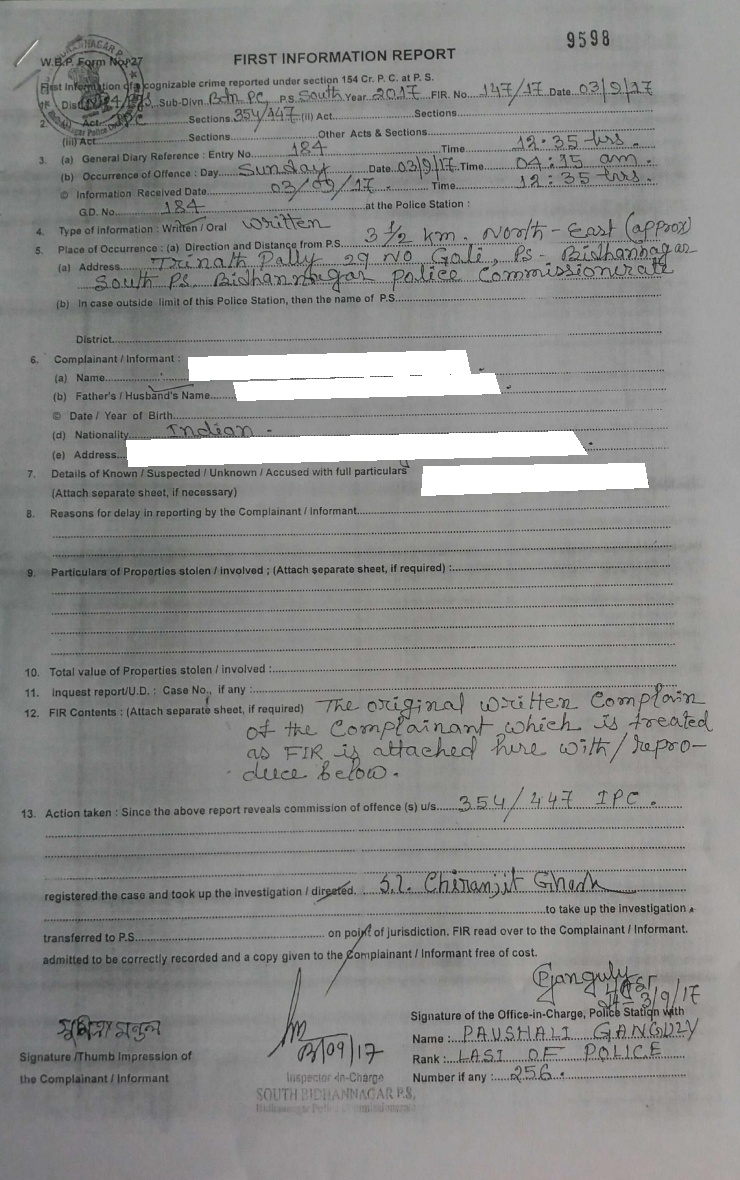 9598
W.B.P. Form No. 27
FIRST INFORMATION REPORT
First Information of a cognizable crime reported under section 154 Cr. P. C. at P. S.
1. Dist. Sub-Divn. Bdn PC P.S. South Year 2017 FIR. No. 147/17 Date 03/9/17
2. Act IPC Sections 354/447 (ii) Act Sections
(iii) Act Sections Other Acts & Sections
3. (a) General Diary Reference : Entry No. 184 Time 12:35 hrs.
(b) Occurrence of Offence : Day Sunday Date 03/9/17 Time 04:15 am.
© Information Received Date 03/09/17. Time 12:35 hrs.
G.D. No. 184 at the Police Station :
4. Type of information : Written / Oral Written
5. Place of Occurrence : (a) Direction and Distance from P.S. 3 1/2 km. North-East (approx)
(a) Address Trinath Pally 29 No Gali, PS- Bidhannagar
South PS. Bidhannagar Police Commissionerate
(b) In case outside limit of this Police Station, then the name of P.S.
District
6. Complainant / Informant :
(a) Name
(b) Father's / Husband's Name
© Date / Year of Birth
(d) Nationality Indian -
(e) Address
7. Details of Known / Suspected / Unknown / Accused with full particulars
(Attach separate sheet, if necessary)
8. Reasons for delay in reporting by the Complainant / Informant
9. Particulars of Properties stolen / involved ; (Attach separate sheet, if required) :
10. Total value of Properties stolen / involved :
11. Inquest report/U.D. : Case No., if any :
12. FIR Contents : (Attach separate sheet, if required) The original written Complain
of the Complainant which is treated
as FIR is attached here with/repro-
duce below.
13. Action taken : Since the above report reveals commission of offence (s) u/s. 354/447 IPC.
registered the case and took up the investigation / directed. S.I. Chiranjit Ghosh
to take up the investigation
transferred to P.S. on point of jurisdiction. FIR read over to the Complainant / Informant.
admitted to be correctly recorded and a copy given to the Complainant / Informant free of cost.
PGanguly
3/9/17
Signature of the Office-in-Charge, Police Station with
সুমিত্রা মন্ডল
03/09/17
Name : PAUSHALI GANGULY
Signature /Thumb Impression of
the Complainant / Informant
Rank : LASI OF POLICE
Inspector-in-Charge
Number if any : 256.
SOUTH BIDHANNAGAR P.S.
Bidhannagar Police Commissionerate